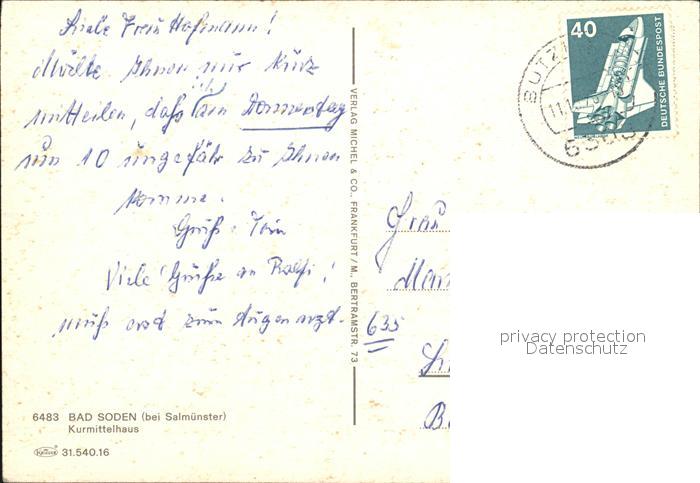 Liebe Frau Hofmann!
Wollte Ihnen nur kurz
mitteilen, daß ich am Donnerstag
um 10 ungefähr zu Ihnen
komme.
Gruß
Viele Grüße an Ralfi!
muß erst zum Augenarzt.
6483 BAD SODEN (bei Salmünster)
Kurmittelhaus
31.540.16
VERLAG MICHEL & CO., FRANKFURT/M., BERTRAMSTR. 73
40
DEUTSCHE BUNDESPOST
BUTZ
Frau
635
privacy protection
Datenschutz